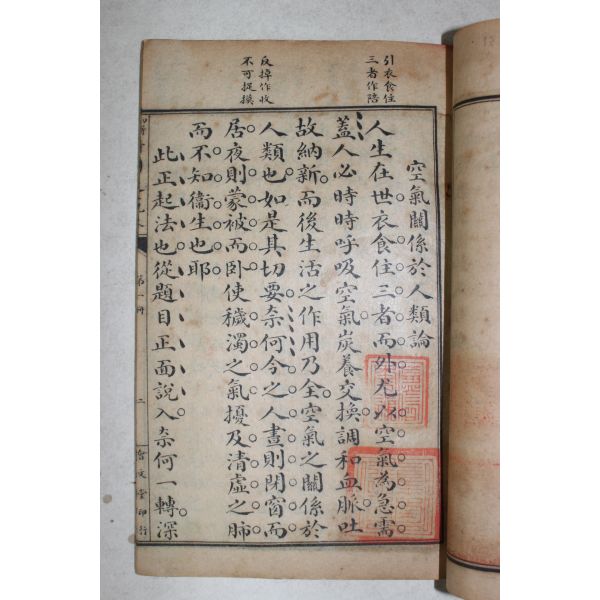 引衣食住
三者作陪
反掉作收
不可捉摸
空氣關係於人類論
人生在世衣食住三者而外尤以空氣為急需
蓋人必時時呼吸空氣炭養交換調和血脈吐
故納新而後生活之作用乃全空氣之關係於
人類也如是其切要奈何今之人晝則閉窗而
居夜則蒙被而臥使穢濁之氣擾及清虛之肺
而不知衞生也耶
此正起法也從題目正面說入奈何一轉深
第一册
二
會文堂印行